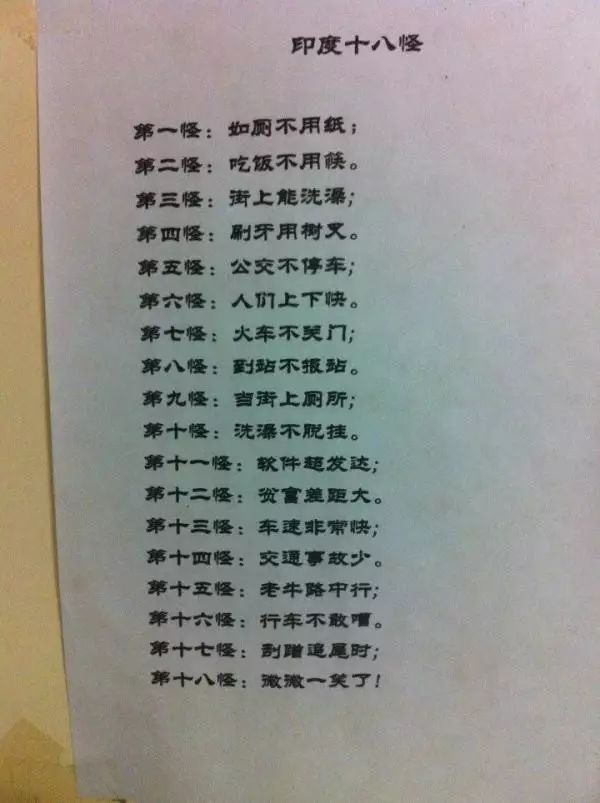 印度十八怪
第一怪：如厕不用纸；
第二怪：吃饭不用筷。
第三怪：街上能洗澡；
第四怪：刷牙用树叉。
第五怪：公交不停车；
第六怪：人们上下快。
第七怪：火车不关门；
第八怪：到站不报站。
第九怪：当街上厕所；
第十怪：洗澡不脱挂。
第十一怪：软件超发达；
第十二怪：贫富差距大。
第十三怪：车速非常快；
第十四怪：交通事故少。
第十五怪：老牛路中行；
第十六怪：行车不敢嘈。
第十七怪：刮蹭追尾时；
第十八怪：微微一笑了！